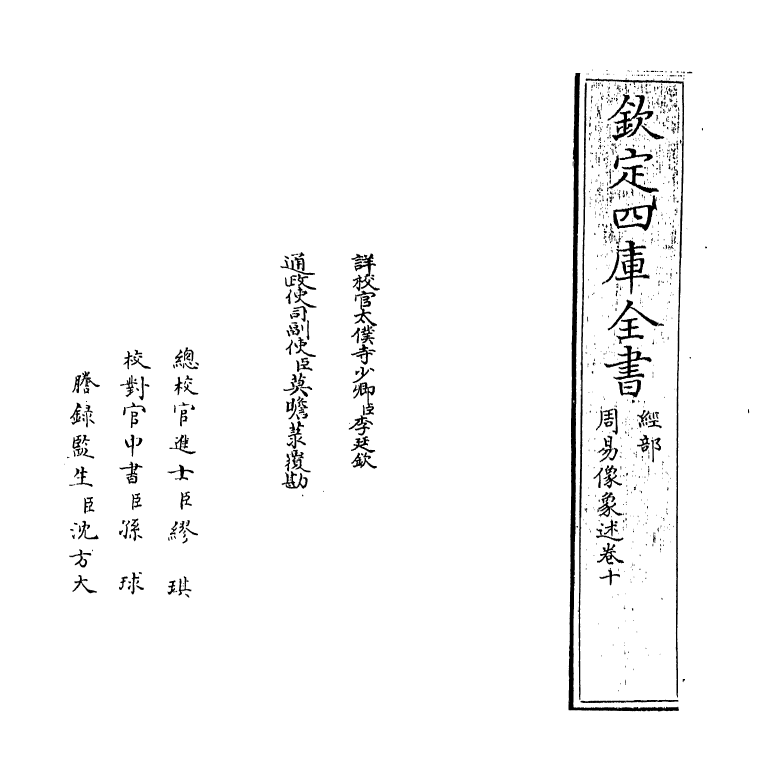 欽定四庫全書
經部
周易像象述卷十
詳校官太僕寺少卿臣李廷欽
通政使司副使臣莫瞻菉覆勘
總校官進士臣繆琪
校對官中書臣孫球
謄録監生臣沈方大